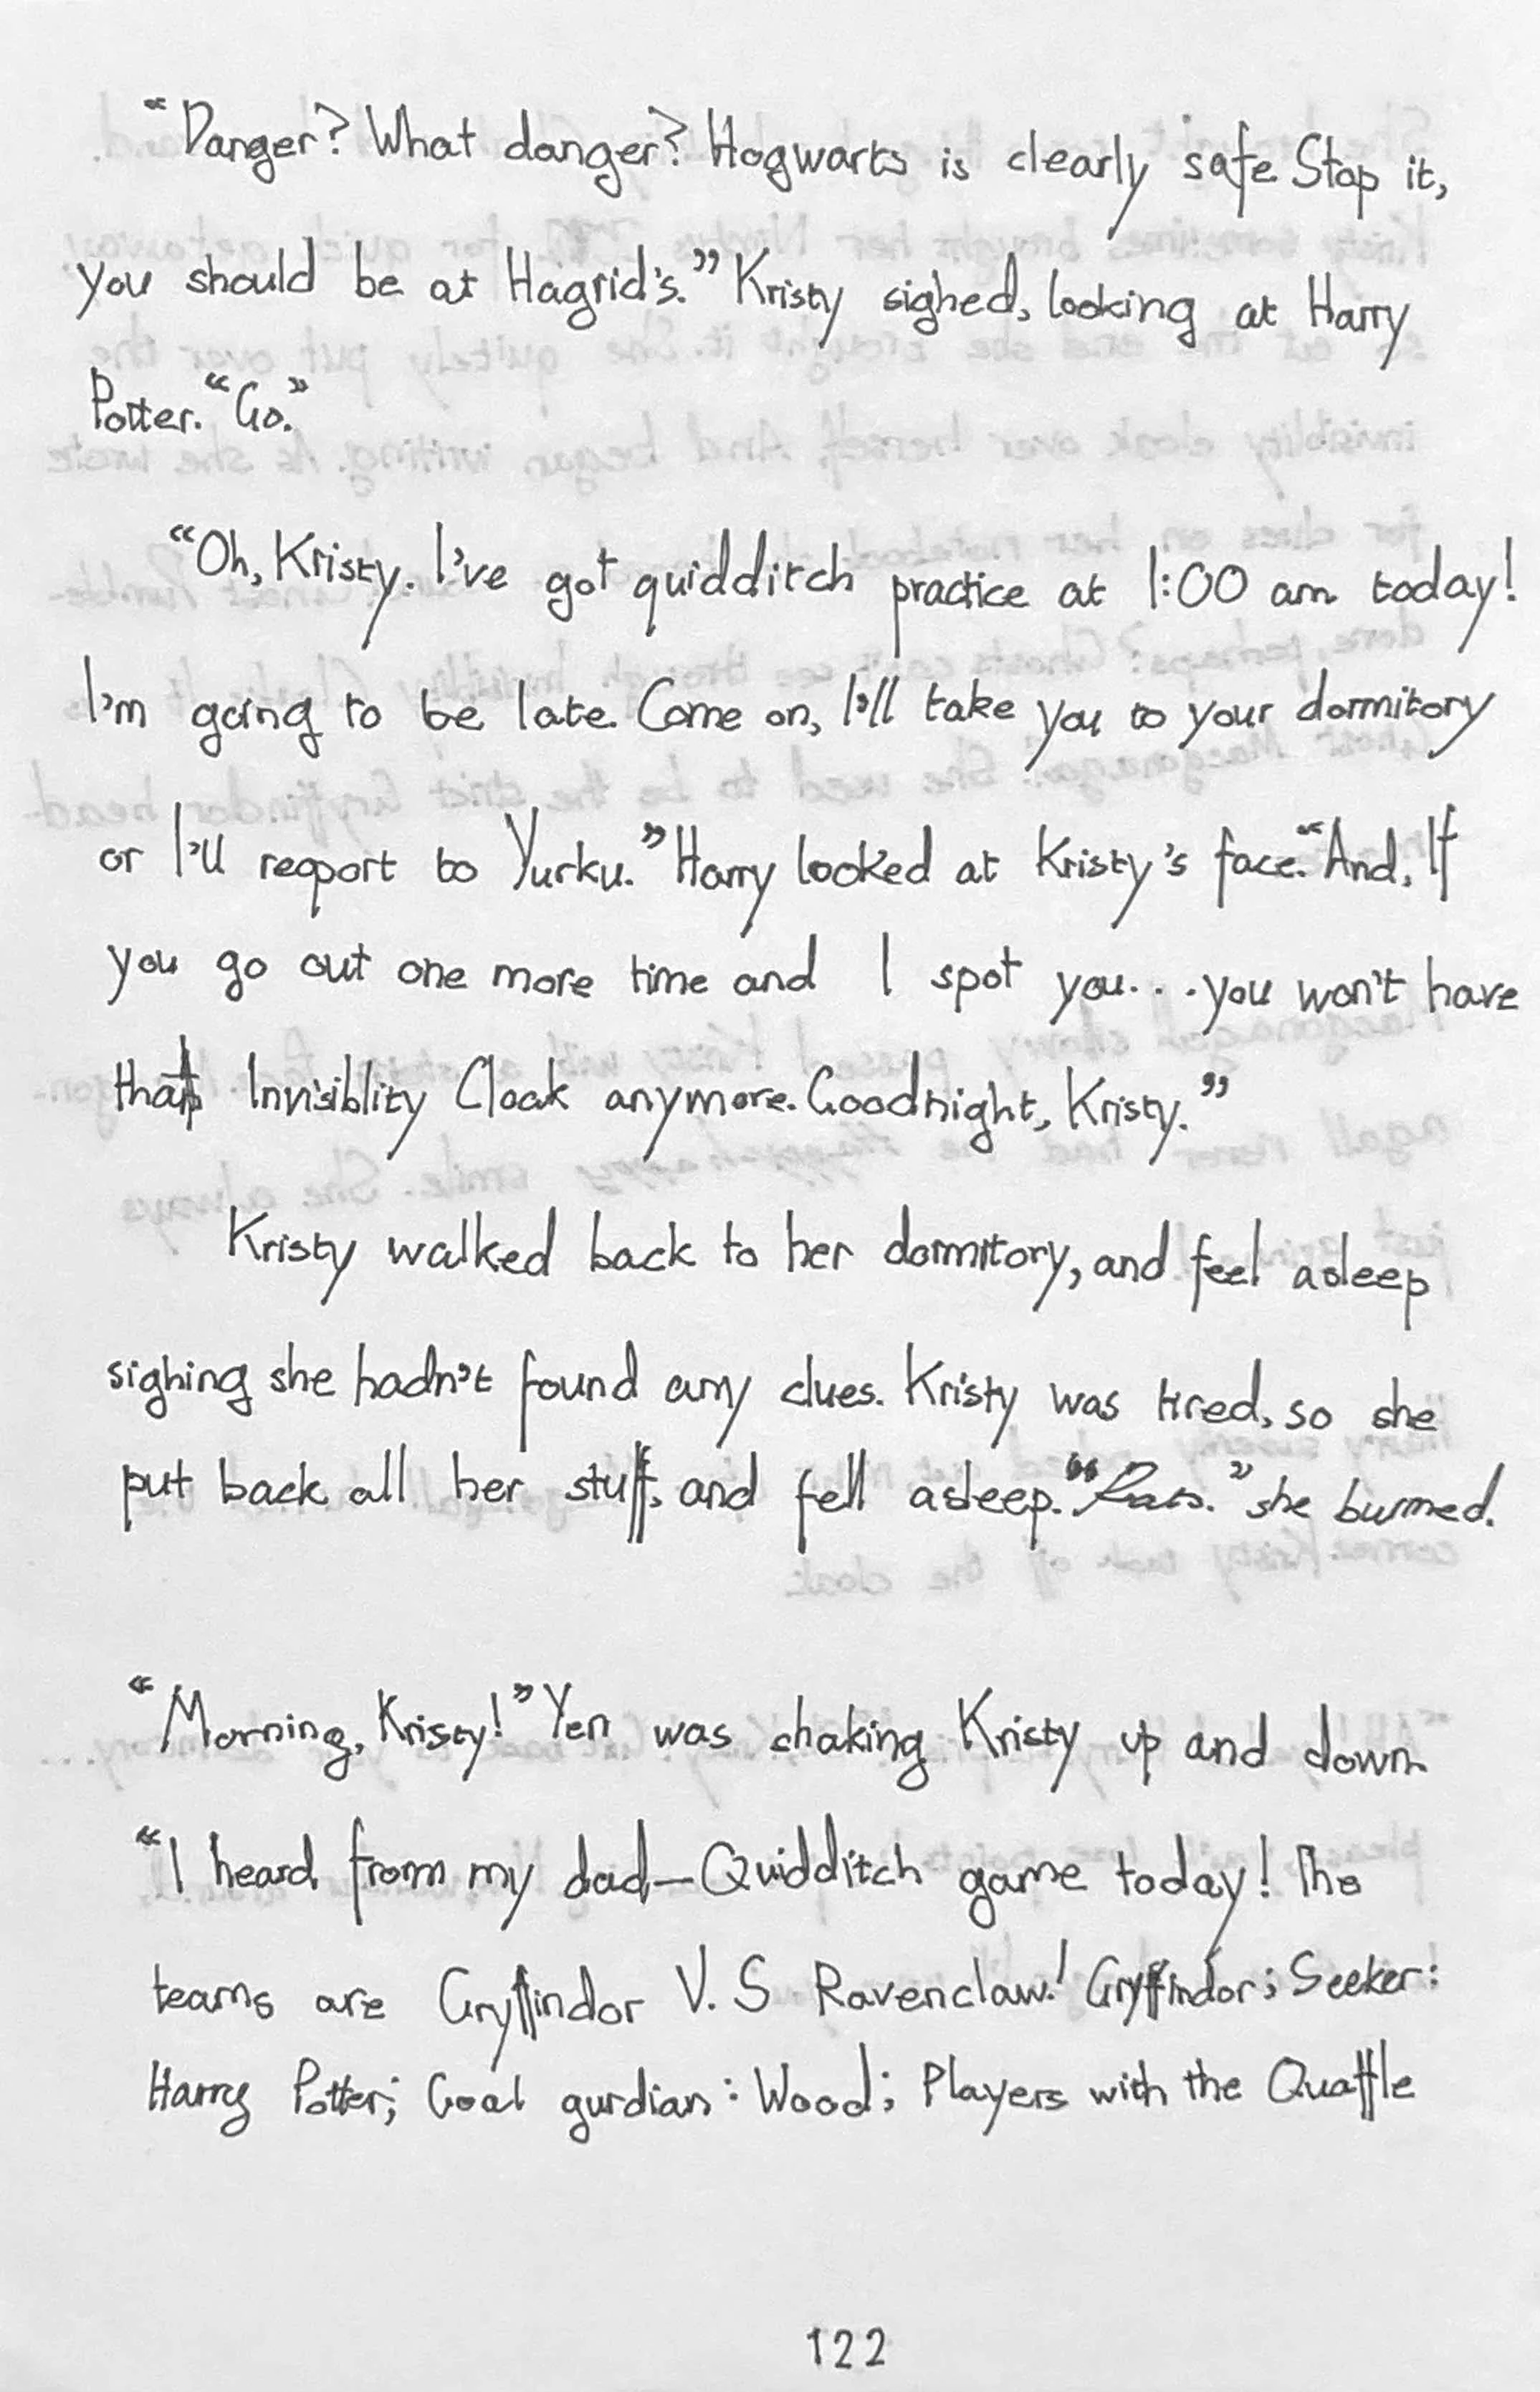 “Danger? What danger? Hogwarts is clearly safe. Stop it,
you should be at Hagrid's.” Kristy sighed, looking at Harry
Potter. “Go.”
“Oh, Kristy. I've got quidditch practice at 1:00 am today!
I'm going to be late. Come on, I'll take you to your dormitory
or I'll reqport to Yurku.” Harry looked at Kristy's face. “And, If
you go out one more time and I spot you... you won't have
that Invisiblity Cloak anymore. Goodnight, Kristy.”
Kristy walked back to her dormitory, and feel asleep
sighing she hadn't found any clues. Kristy was tired, so she
put back all her stuff, and fell asleep. “ ” she bummed.
“Morning, Kristy!” Yen was shaking Kristy up and down.
“I heard from my dad—Quidditch game today! The
teams are Gryffindor V.S Ravenclaw! Gryffindor; Seeker:
Harry Potter; Goal gurdian: Wood; Players with the Quaffle
122